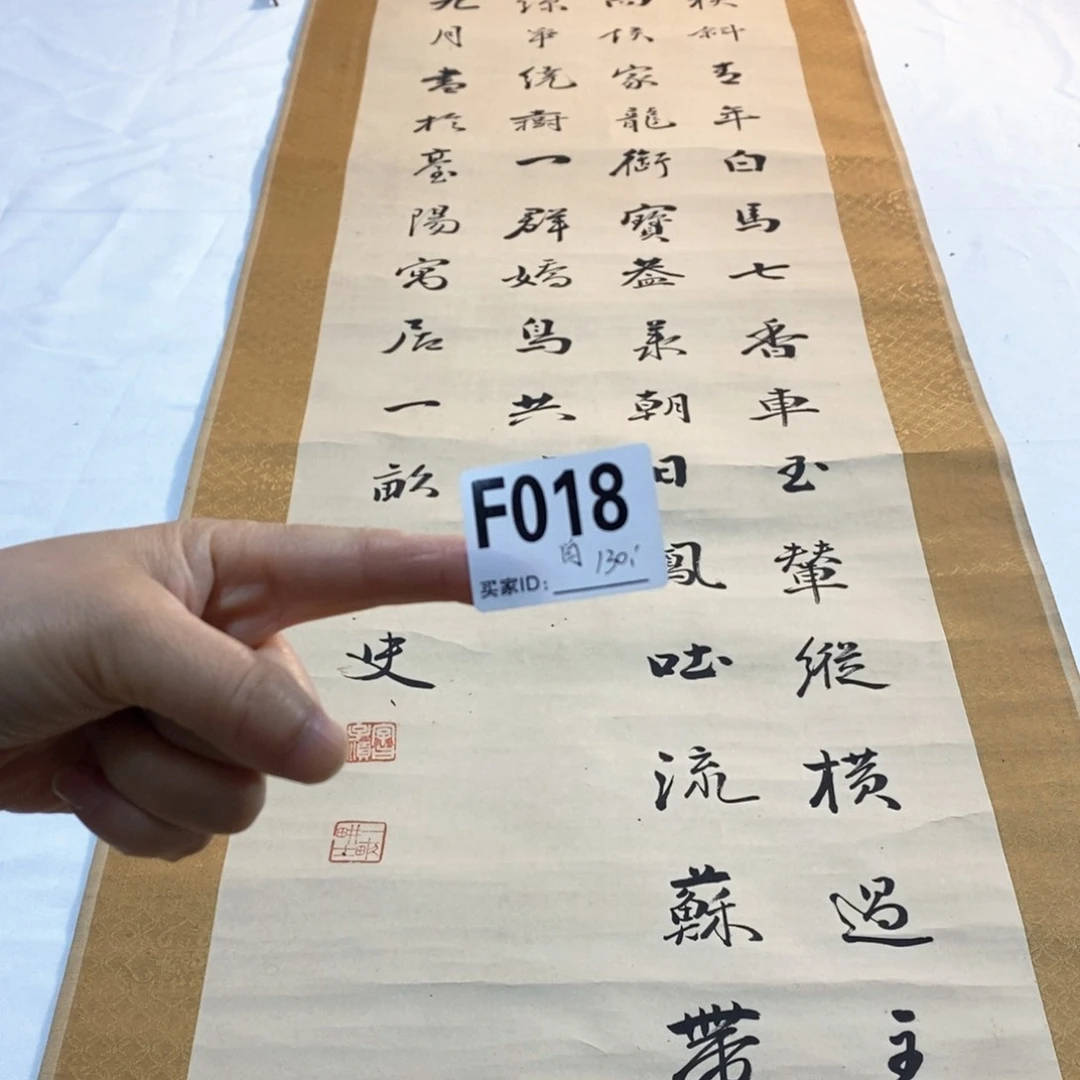 斜青年白馬七香車玉輦縱橫過主
侯家龍銜寶蓋承朝日鳳吐流蘇帶
爭繞樹一群嬌鳥共
月書於臺陽寓居一畝
史
F018
130
买家ID: